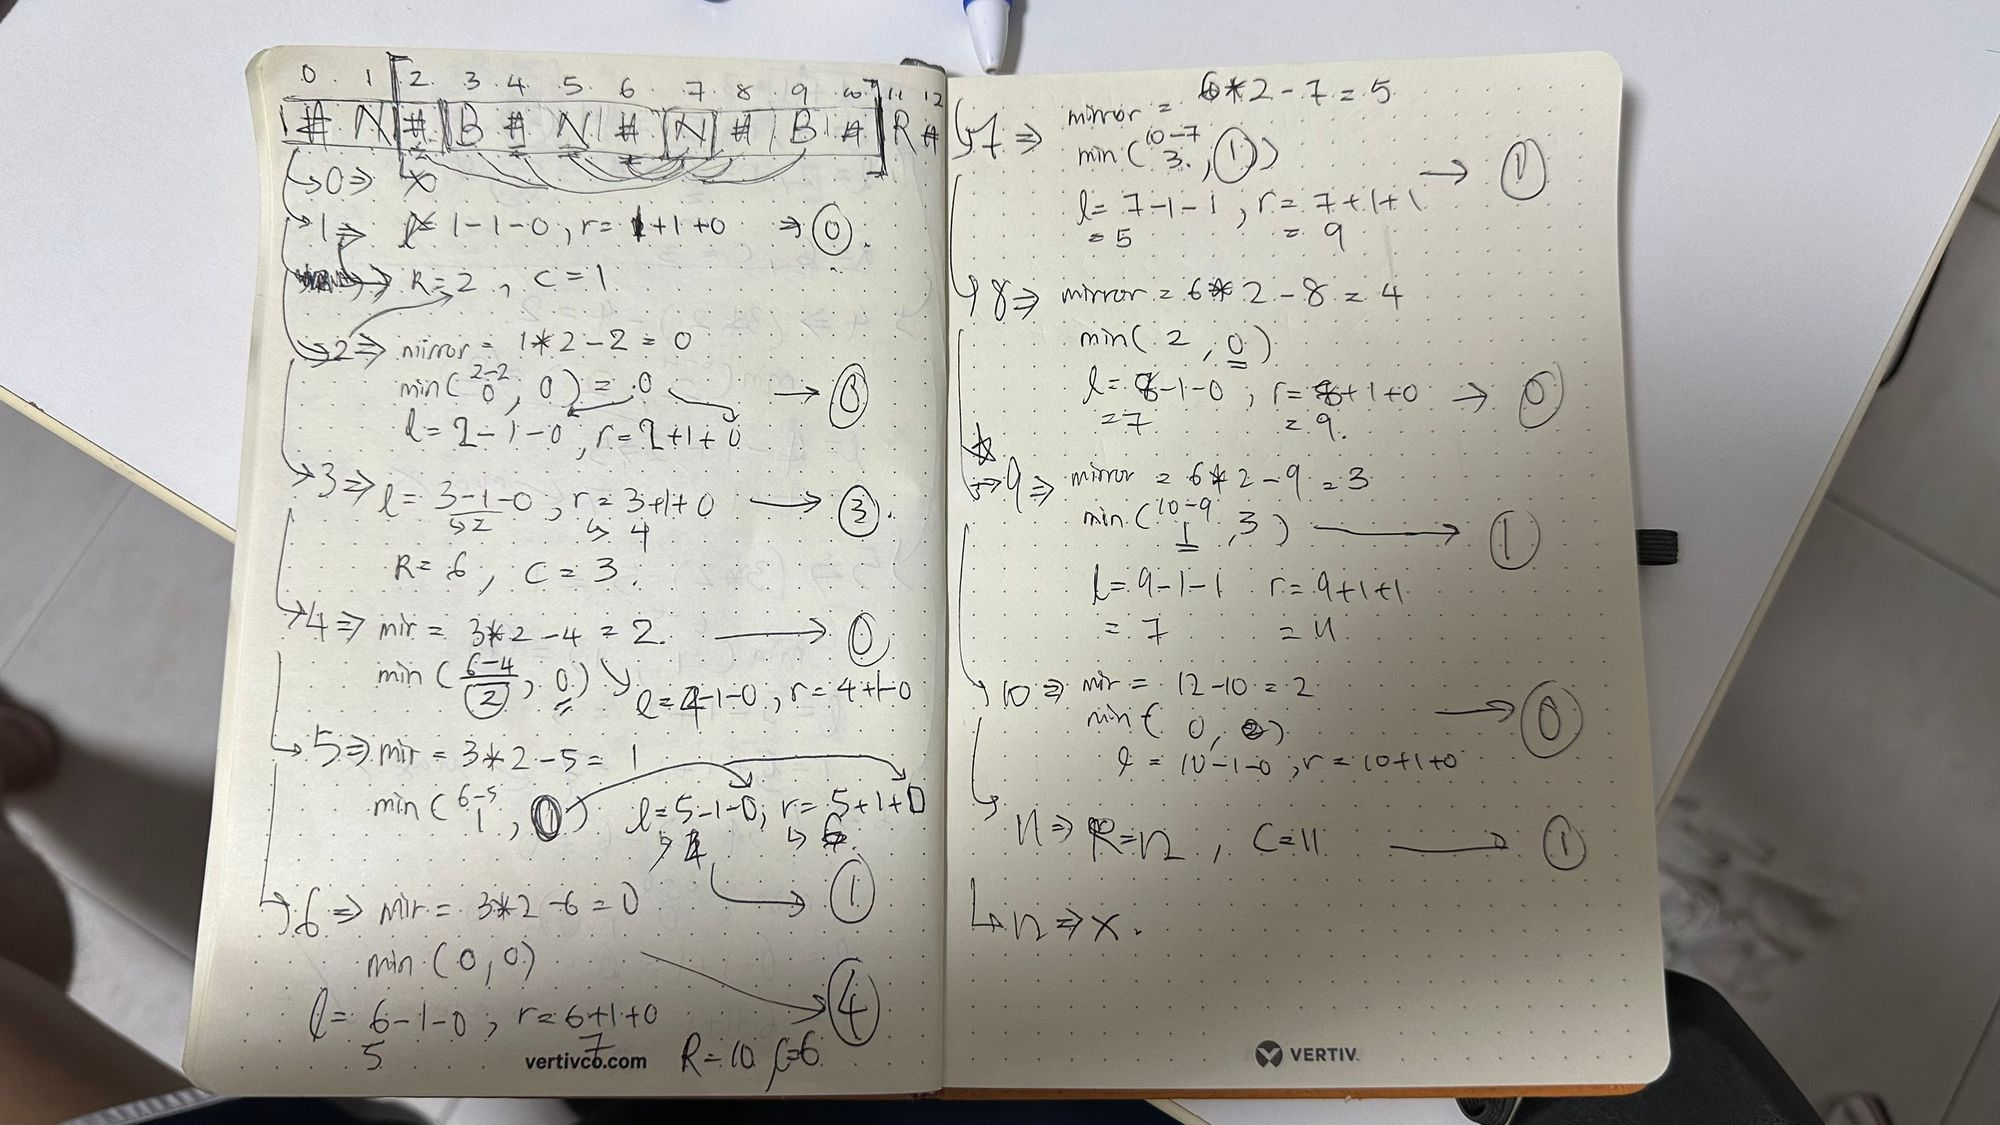 0 1 2 3 4 5 6 7 8 9 10 11 12
# N # B # N # N # B # R #
0 ⇒ x
1 ⇒ l = 1-1-0, r = 1+1+0 ⇒ 0
R=2, C=1
2 ⇒ mirror = 1*2-2 = 0
2-2
min(0, 0) = 0 → 0
l = 2-1-0, r = 2+1+0
3 ⇒ l = 3-1-0, r = 3+1+0 → 3
↳ 2 ↳ 4
R = 6, C = 3.
4 ⇒ mir = 3*2-4 = 2 → 0
6-4
min(2, 0) l = 4-1-0, r = 4+1-0
5 ⇒ mir = 3*2-5 = 1
6-5
min(1, 0) l = 5-1-0, r = 5+1+0
↳ 4 ↳ 6
→ 1
6 ⇒ mir = 3*2-6 = 0
min(0, 0) → 4
l = 6-1-0, r = 6+1+0
5 7
vertivco.com R=10 C=6
6*2-7 = 5
7 ⇒ mirror =
10-7
min(3, 1) → 1
l = 7-1-1, r = 7+1+1
= 5 = 9
8 ⇒ mirror = 6*2-8 = 4
min(2, 0)
l = 8-1-0, r = 8+1+0 → 0
= 7 = 9.
9 ⇒ mirror = 6*2-9 = 3
10-9
min(1, 3) → 1
l = 9-1-1 r = 9+1+1
= 7 = 11
10 ⇒ mir = 12-10 = 2
min(0, 2) → 0
l = 10-1-0, r = 10+1+0
11 ⇒ R=12, C=11 → 1
12 ⇒ x.
VERTIV